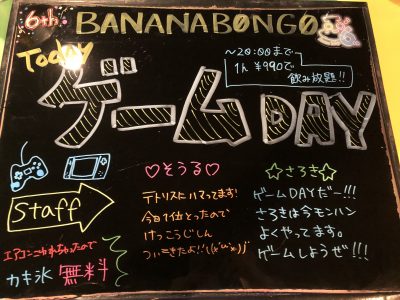 6th BANANABONGO
Today
～20:00まで
1h ¥990で
飲み放題!!
ゲームDAY
Staff
♡そうる♡
テトリスにハマってます!
今日1位とったので
けっこうじしん
ついてきたよ!!
☆さろき☆
ゲームDAYだー!!!
さろきは今モンハン
よくやってます。
ゲームしようぜ!!!
エアコンこわれちゃったので
カキ氷 無料